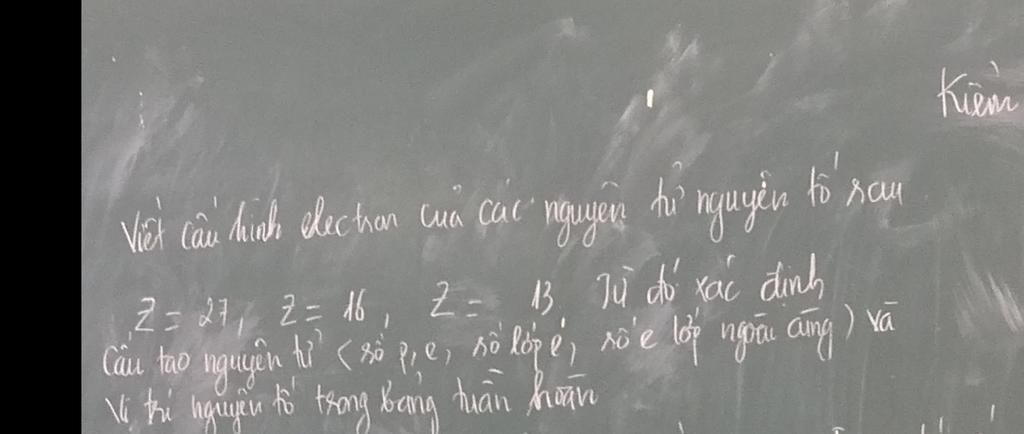 Kiểm
Viết cấu hình electron của các nguyên tử nguyên tố sau
Z = 27, Z = 16, Z = 13. Từ đó xác định
Cấu tạo nguyên tử (số p, e, số lớp e, số e lớp ngoài cùng) và
Vị trí nguyên tố trong bảng tuần hoàn